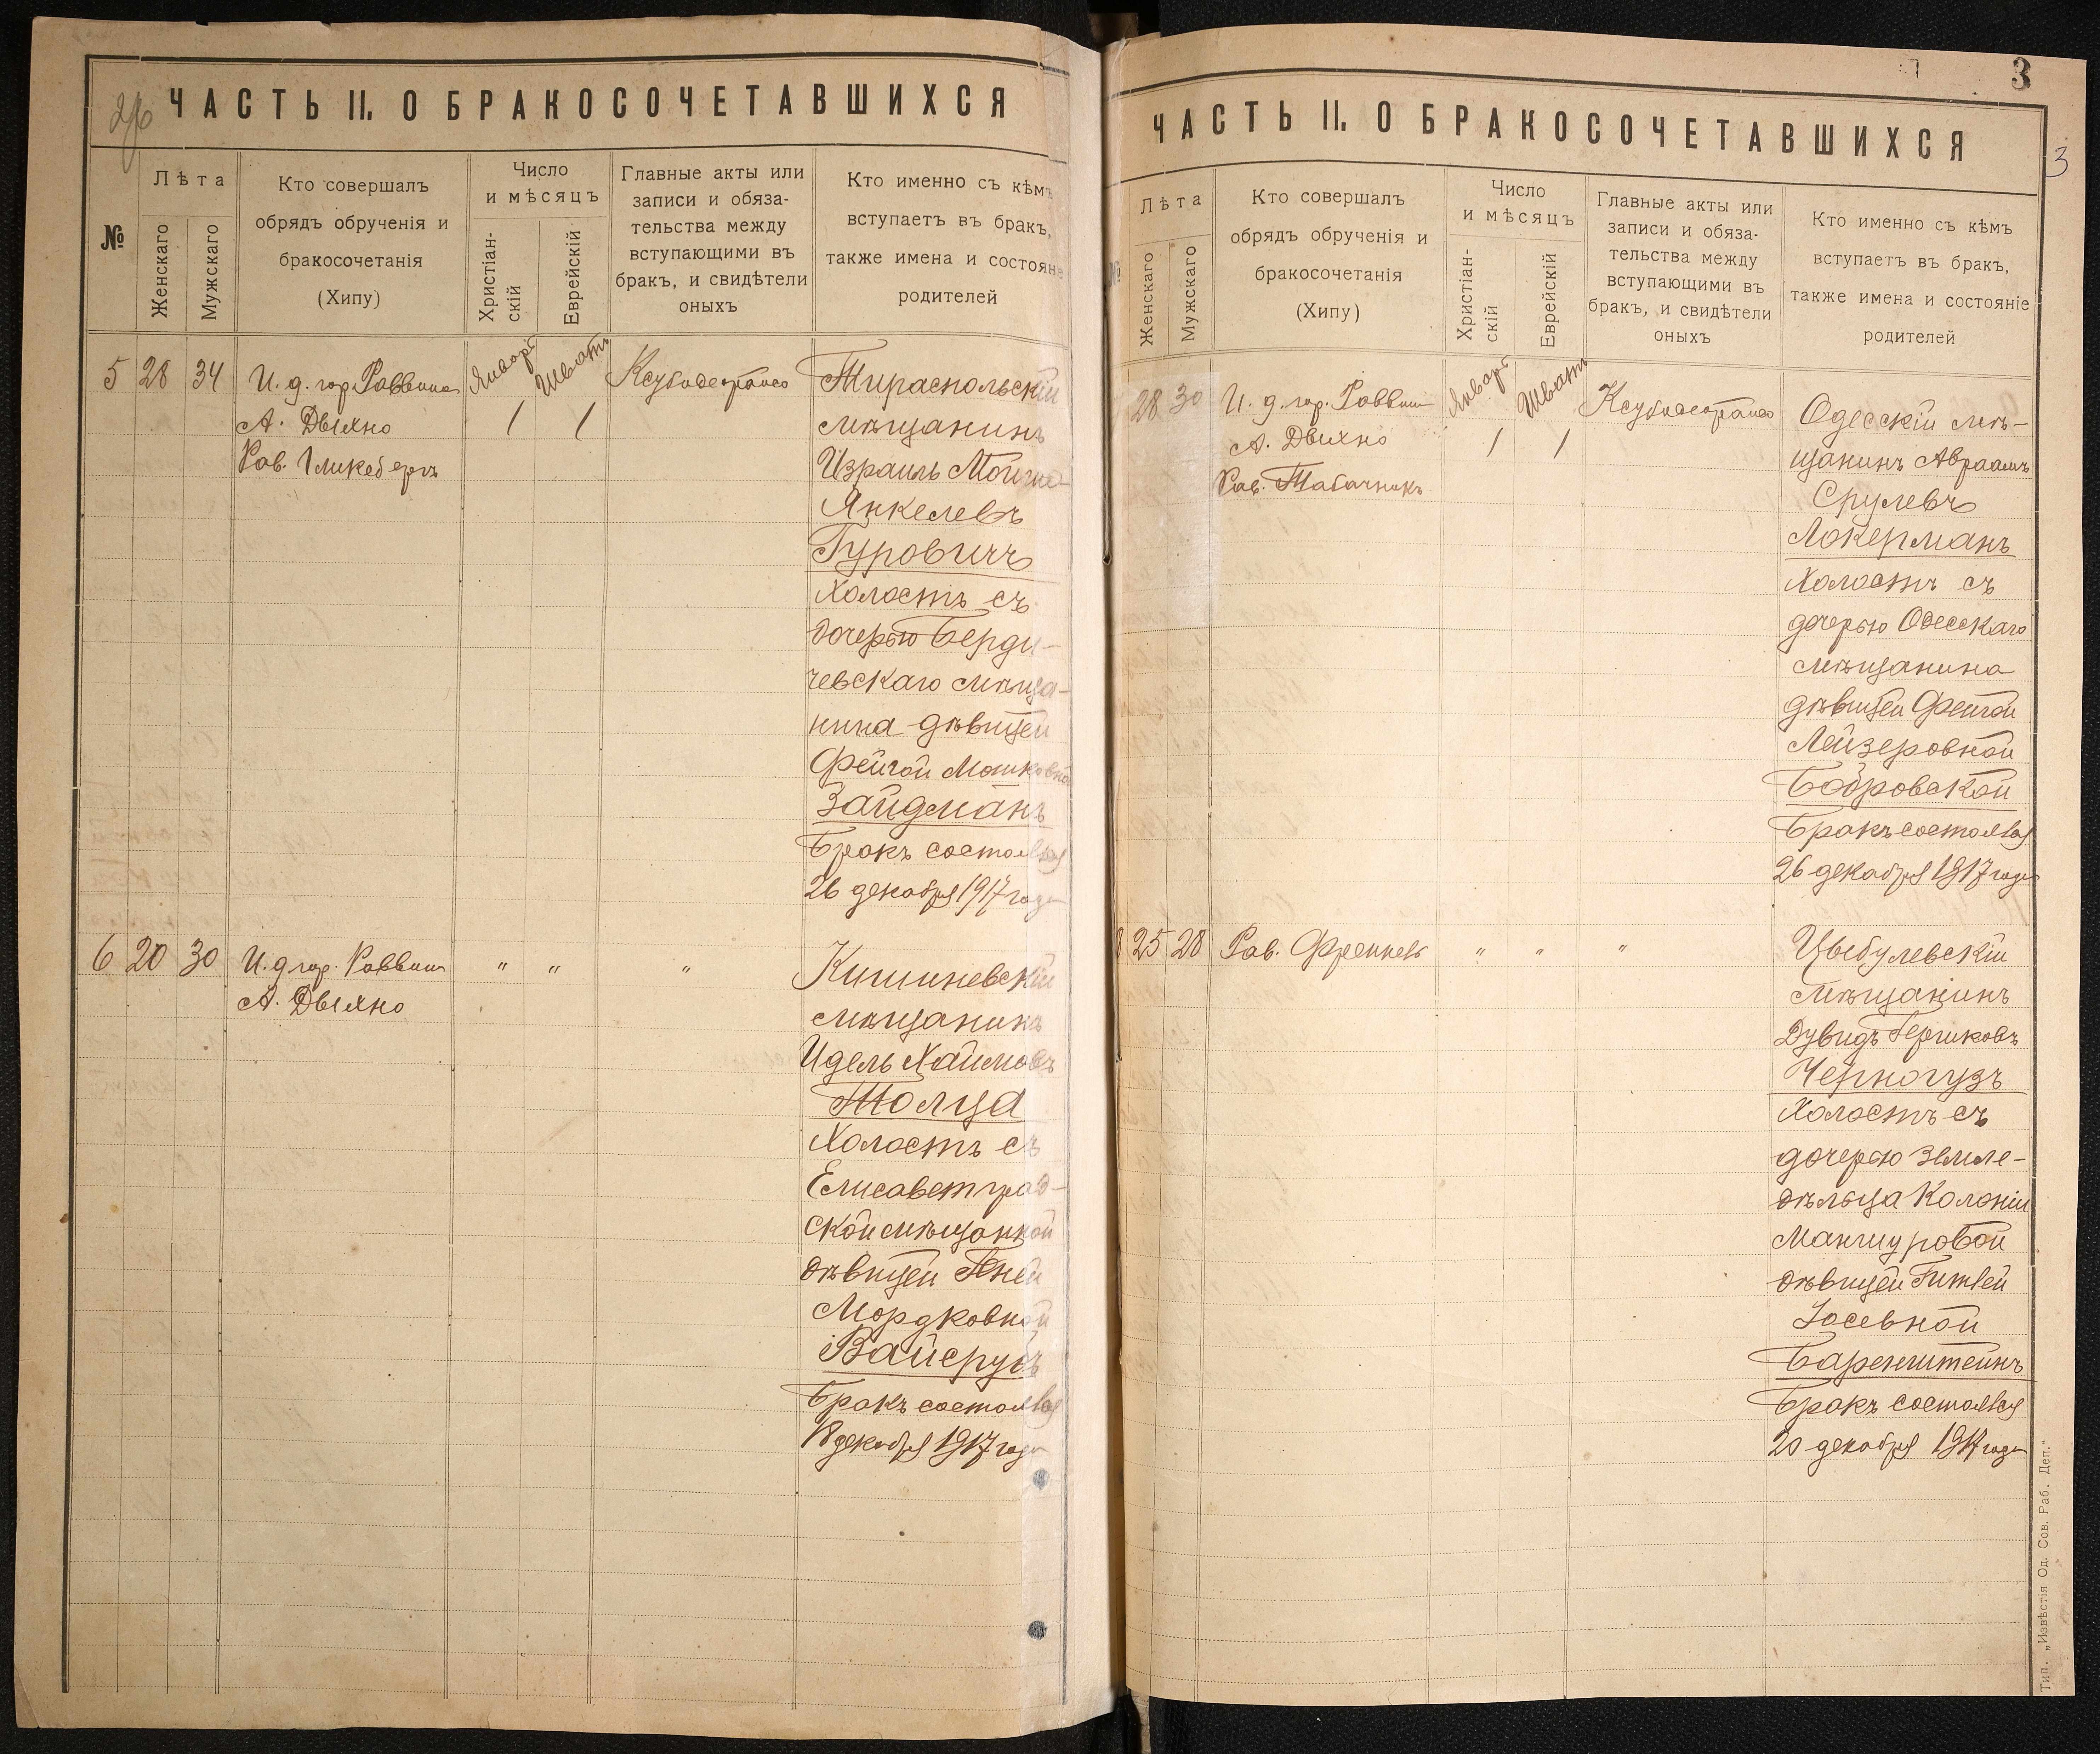 2/6
ЧАСТЬ II. О БРАКОСОЧЕТАВШИХСЯ
№
Лѣта
Женскаго
Мужскаго
Кто совершалъ
обрядъ обрученія и
бракосочетанія
(Хипу)
Число
и мѣсяцъ
Христіан-
скій
Еврейскій
Главные акты или
записи и обяза-
тельства между
вступающими въ
бракъ, и свидѣтели
оныхъ
Кто именно съ кѣмъ
вступаетъ въ бракъ,
также имена и состоян
родителей
5 28 34
И. д. гор. Раввина
А. Двыхно
Рав. Гликсбергъ
Январь
1
Шватъ
1
Тираспольскій
мѣщанинъ
Израиль Мойше-
Янкелевъ
Гуровичъ
Холостъ съ
дочерью Берди-
чевскаго мѣща-
нина дѣвицей
Фейгой Машковной
Зайдманъ
Бракъ состоялся
26 декабря 1917 года
6 20 30
И. д. гор. Раввина
А. Двыхно
" " "
Кишиневскій
мѣщанинъ
Идель Хаимовъ
Толца
Холостъ съ
Елисаветград-
ской мѣщанкой
дѣвицей Геней
Мордковной
Вайсрубъ
Бракъ состоялся
18 декабря 1917 года
3
3
ЧАСТЬ II. О БРАКОСОЧЕТАВШИХСЯ
Лѣта
Женскаго
Мужскаго
Кто совершалъ
обрядъ обрученія и
бракосочетанія
(Хипу)
Число
и мѣсяцъ
Христіан-
скій
Еврейскій
Главные акты или
записи и обяза-
тельства между
вступающими въ
бракъ, и свидѣтели
оныхъ
Кто именно съ кѣмъ
вступаетъ въ бракъ,
также имена и состояніе
родителей
28 30
И. д. гор. Раввина
А. Двыхно
Рав. Табачникъ
Январь
1
Шватъ
1
Одесскій мѣ-
щанинъ Авраамъ
Срулевъ
Локерманъ
Холостъ съ
дочерью Одесскаго
мѣщанина
дѣвицей Фейгой
Лейзеровной
Бобровской
Бракъ состоялся
26 декабря 1917 года
8 25 28
Рав. Френкель
" " "
Цыбулевскій
мѣщанинъ
Дувидъ Гершковъ
Черногузъ
Холостъ съ
дочерью земле-
дѣльца Колоніи
Манзуровой
дѣвицей Гитлей
Іосевной
Баренштейнъ
Бракъ состоялся
20 декабря 1917 года
Тип. „Извѣстія Од. Сов. Раб. Деп."